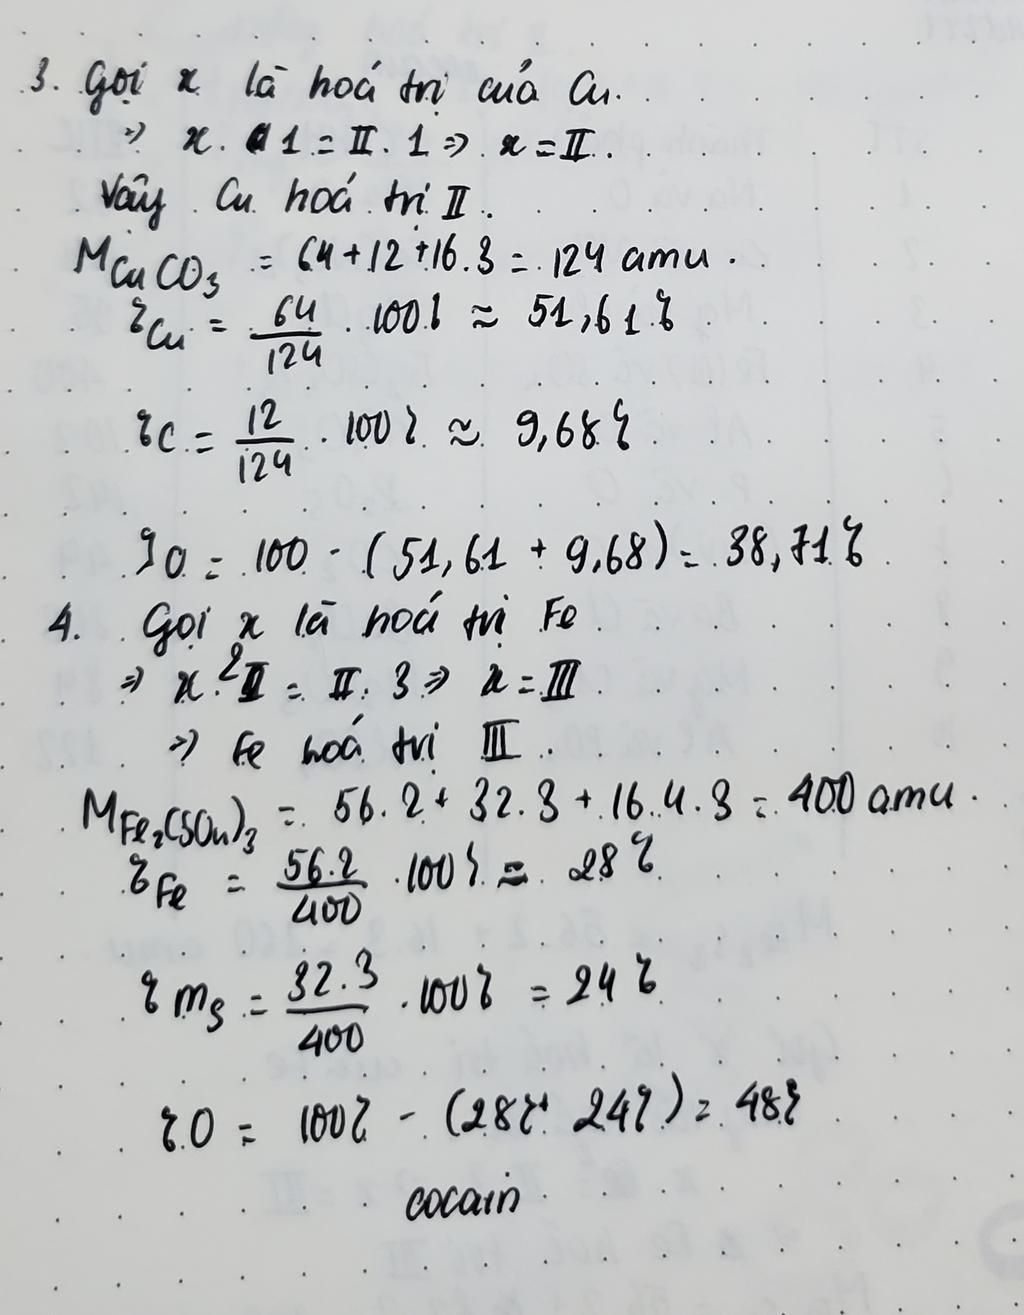 3. Gọi x là hoá trị của Cu.
=> x . 1 = II . 1 => x = II.
Vậy Cu hoá trị II.
M CuCO3 = 64 + 12 + 16.3 = 124 amu.
% Cu = 64/124 . 100% ≈ 51,61%
% C = 12/124 . 100% ≈ 9,68%
% O = 100 - (51,61 + 9,68) = 38,71%
4. Gọi x là hoá trị Fe
=> x . 2 = II . 3 => x = III
=> Fe hoá trị III.
M Fe2(SO4)3 = 56.2 + 32.3 + 16.4.3 = 400 amu.
% Fe = 56.2/400 . 100% = 28%
% mS = 32.3/400 . 100% = 24%
% O = 100% - (28% + 24%) = 48%
cocain